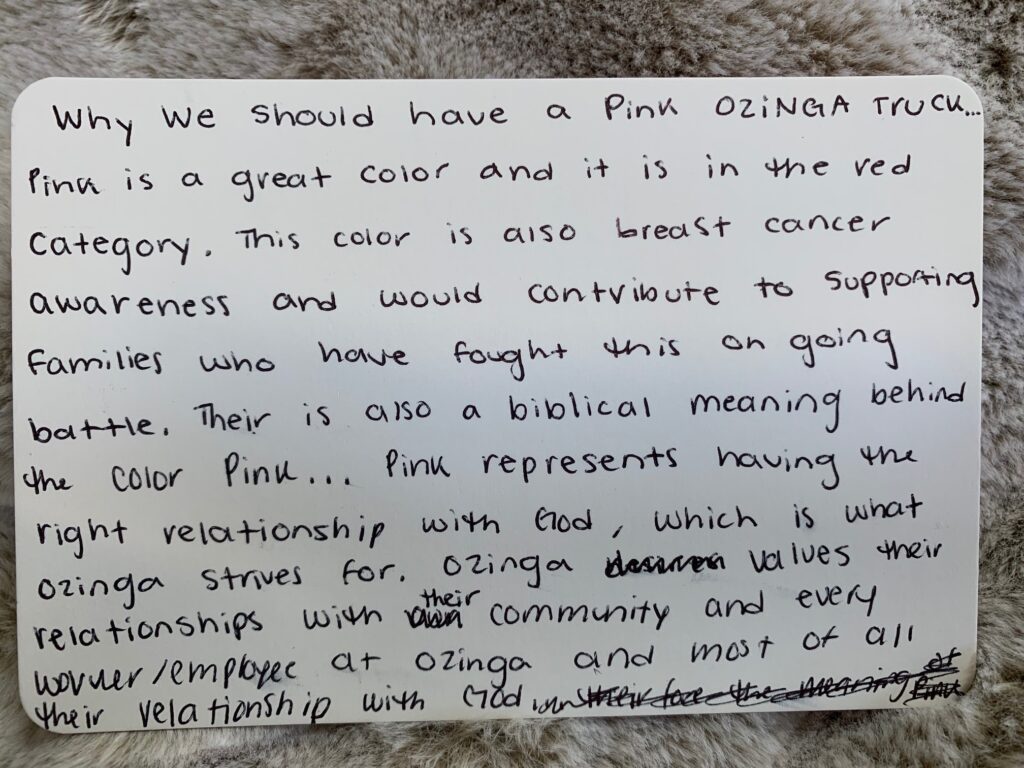 Why We should have a Pink OZiNGA TRUCK...
Pink is a great color and it is in the red
category. This color is also breast cancer
awareness and would contribute to supporting
families who have fought this on going
battle. Their is also a biblical meaning behind
the color Pink... Pink represents having the
right relationship with God, which is what
Ozinga strives for. Ozinga values their
relationships with their community and every
worker/employee at Ozinga and most of all
their relationship with God